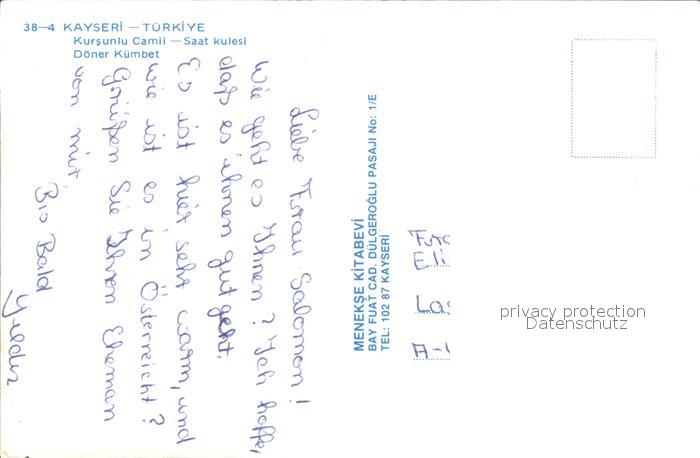 38—4 KAYSERİ — TÜRKİYE
Kurşunlu Camii — Saat kulesi
Döner Kümbet
Liebe Frau Salomon!
Wie geht es Ihnen? Ich hoffe,
daß es ihnen gut geht.
Es ist hier seht warm, und
wie ist es in Österreicht?
Grüßen Sie Ihren Eheman
von mir.
Bis Bald
Yıldız
MENEKŞE KİTABEVİ
BAY FUAT CAD. DÜLGEROĞLU PASAJI No: 1/E
TEL: 102 87 KAYSERİ
privacy protection
Datenschutz